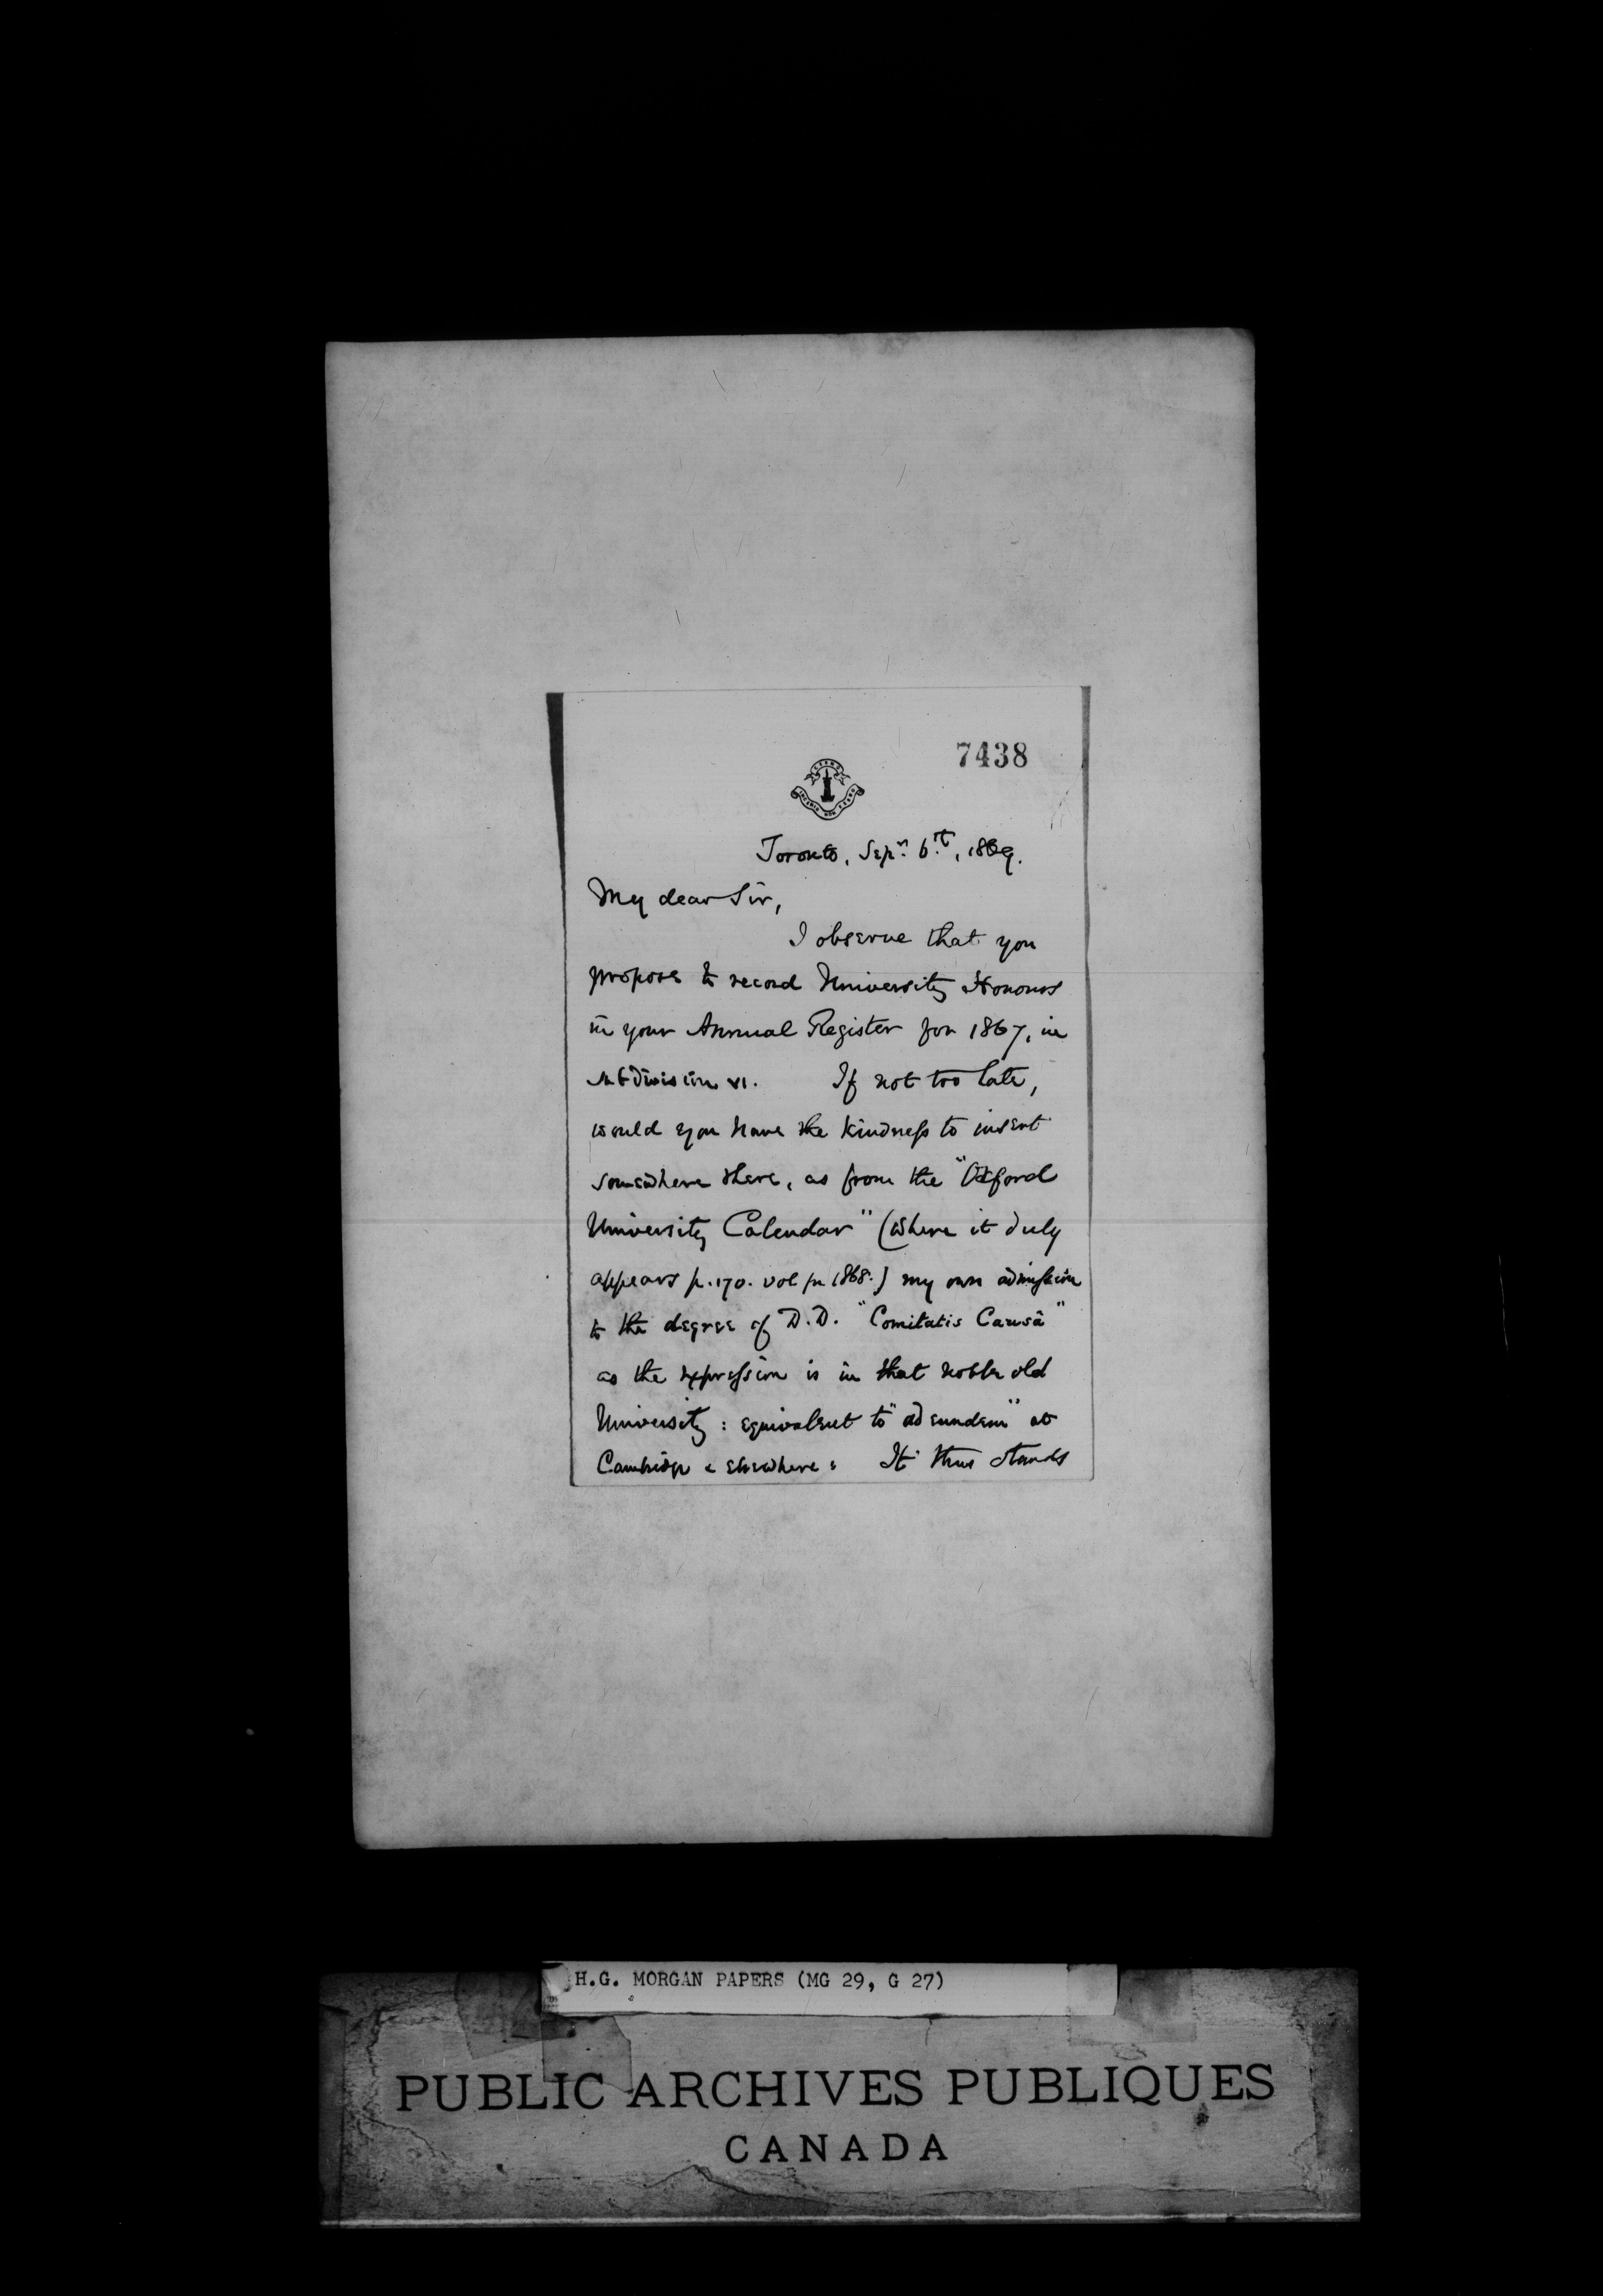 7438
Toronto, Sepr. 6.th, 1869.
My dear Sir,
I observe that you
propose to record University Honours
in your Annual Register for 1867, in
subdivision VI. If not too late,
would you have the kindness to insert
somewhere there, as from the "Oxford
University Calendar" (where it duly
appears p. 170. vol for 1868.) my own admission
to the degree of D.D. "Comitatis Causâ"
as the expression is in that noble old
University: equivalent to "ad eundem" at
Cambridge & elsewhere: It thus stands
H.G. MORGAN PAPERS (MG 29, G 27)
PUBLIC ARCHIVES PUBLIQUES
CANADA